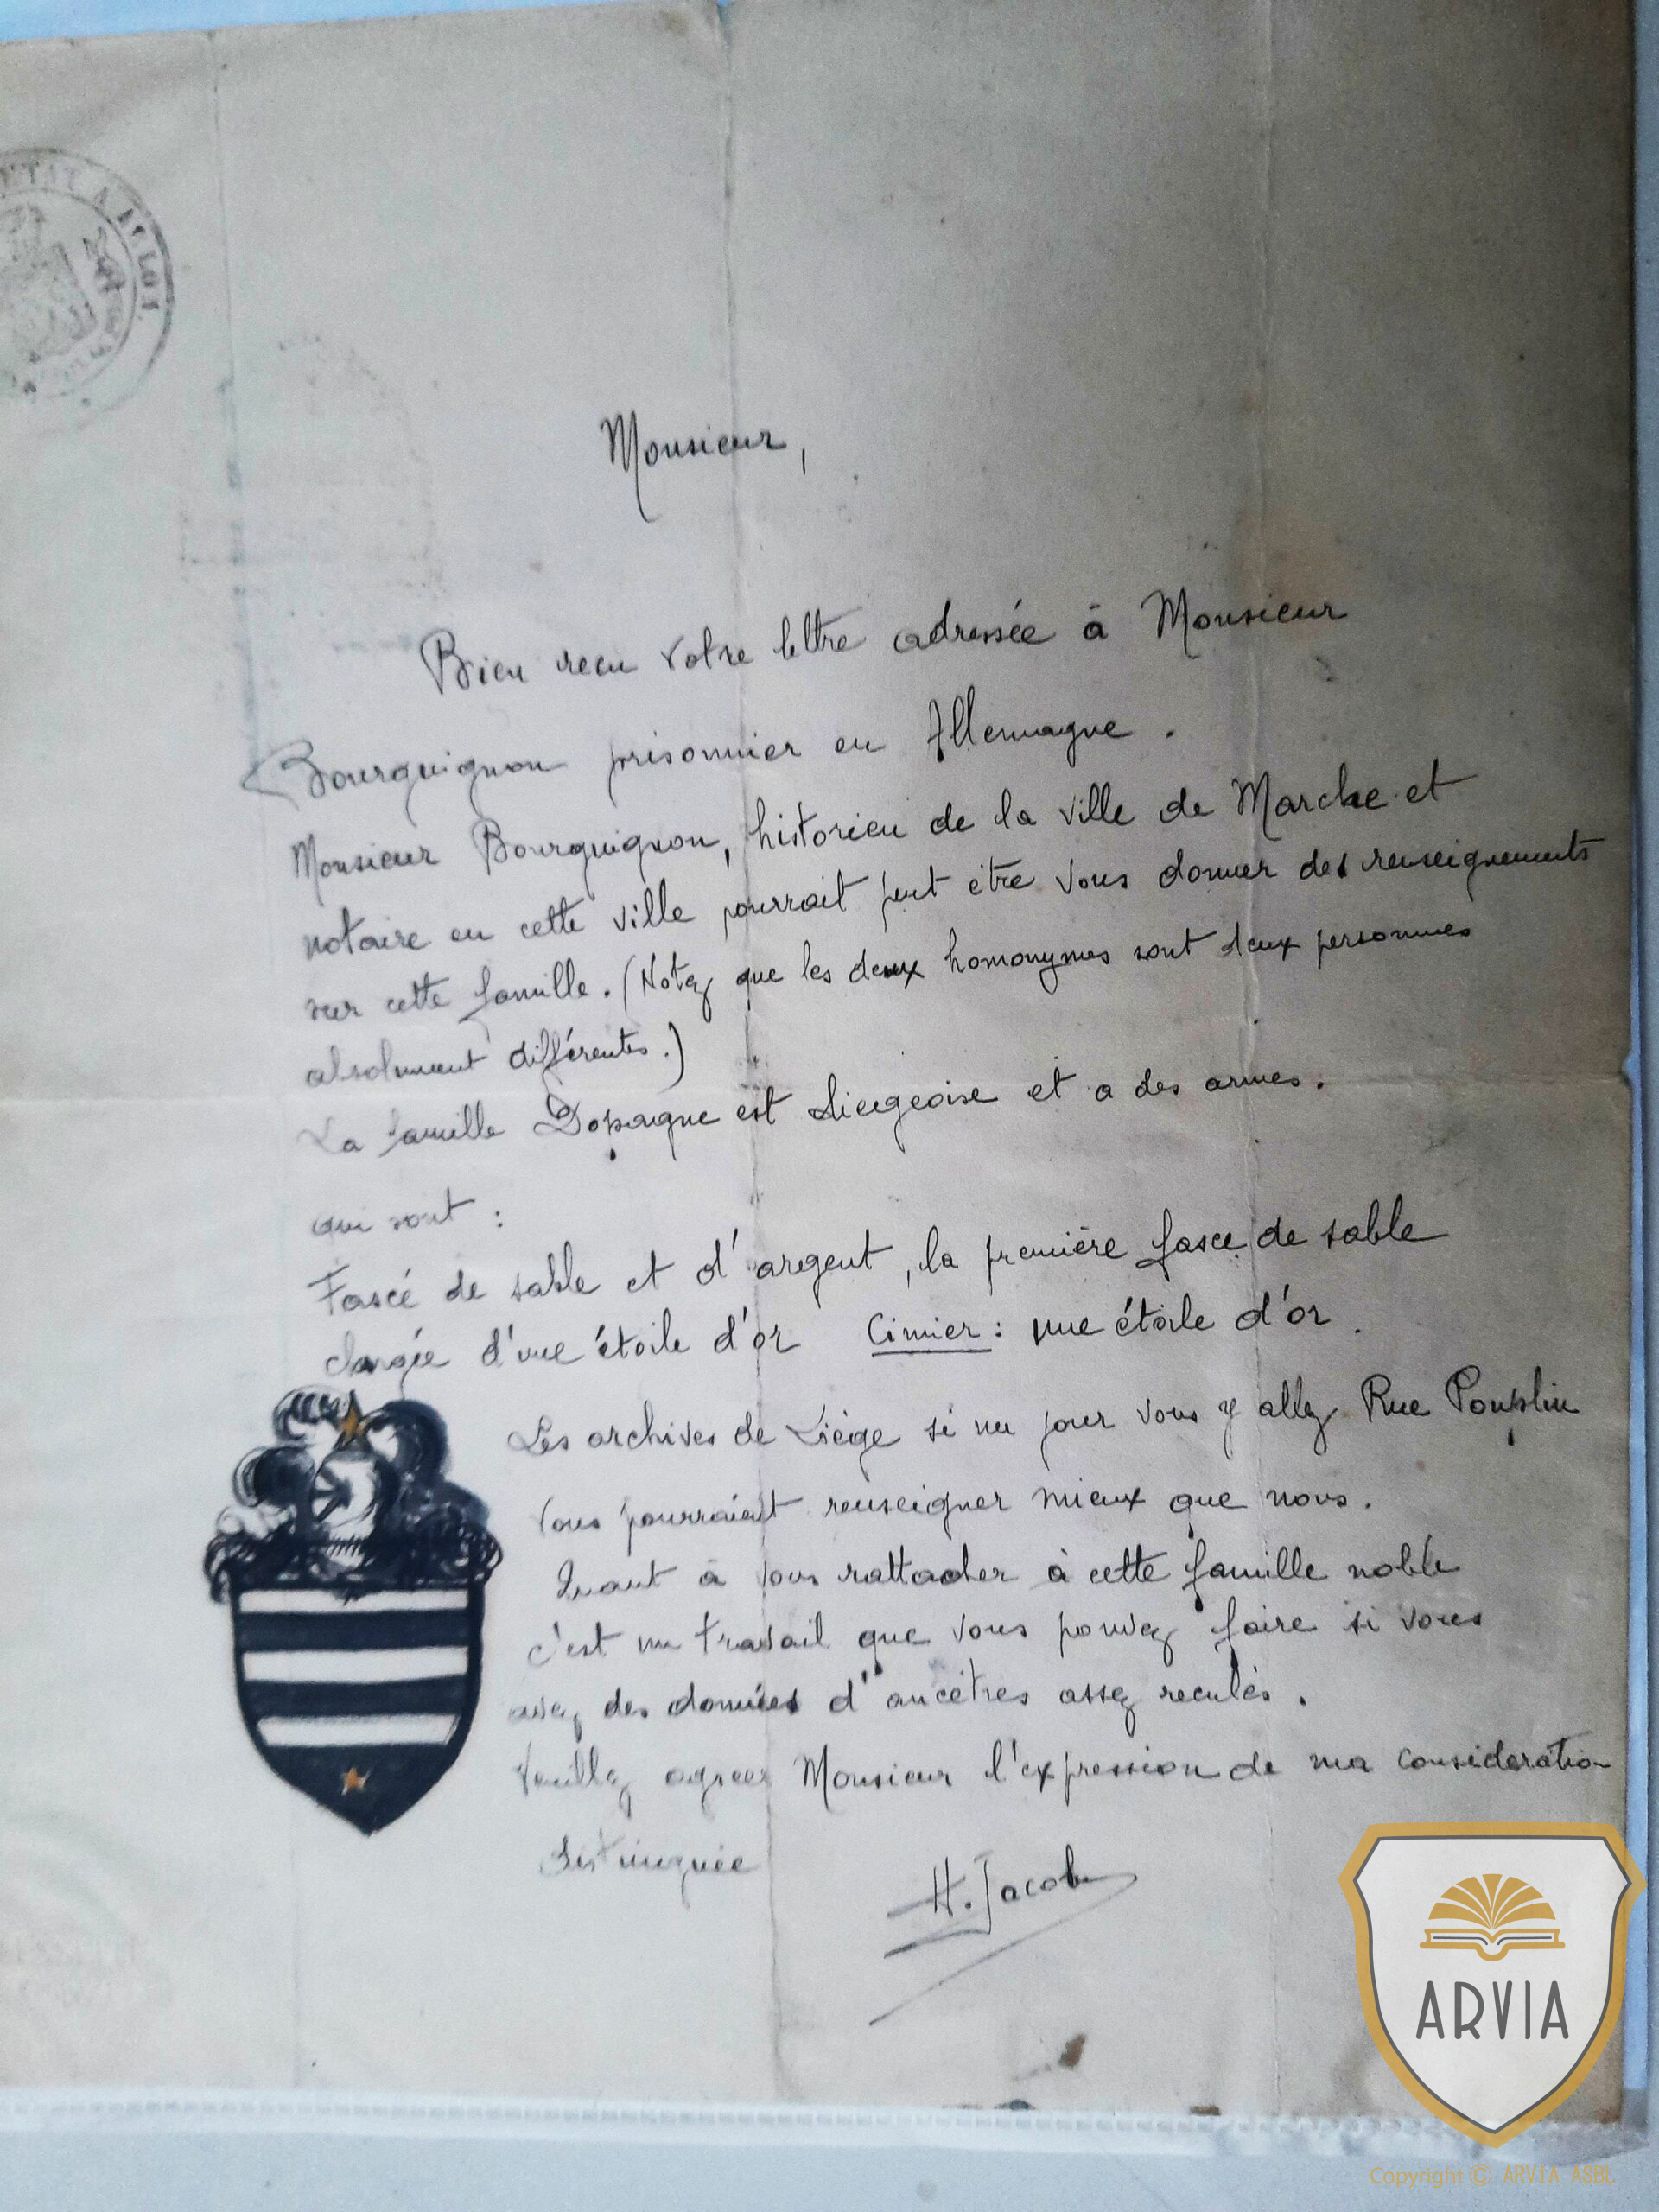 Monsieur,
Bien recu votre lettre adressée à Monsieur
Bourguignon prisonnier en Allemagne.
Monsieur Bourguignon, historien de la ville de Marche et
notaire en cette ville pourrait peut être vous donner des renseignements
sur cette famille. (Notez que les deux homonymes sont deux personnes
absolument différentes.)
La famille Dopagne est Liégeoise et a des armes.
qui sont :
Fascé de sable et d'argent, la première fasce de sable
chargée d'une étoile d'or Cimier : une étoile d'or.
Les archives de Liège si un jour vous y allez Rue Pouplin
vous pourraient renseigner mieux que nous.
Quant à vous rattacher à cette famille noble
c'est un travail que vous pouvez faire si vous
avez des données d'ancêtres assez reculés.
Veuillez agreer Monsieur l'expression de ma consideration
distinguée
H. Jacob
ARVIA
Copyright © ARVIA ASBL